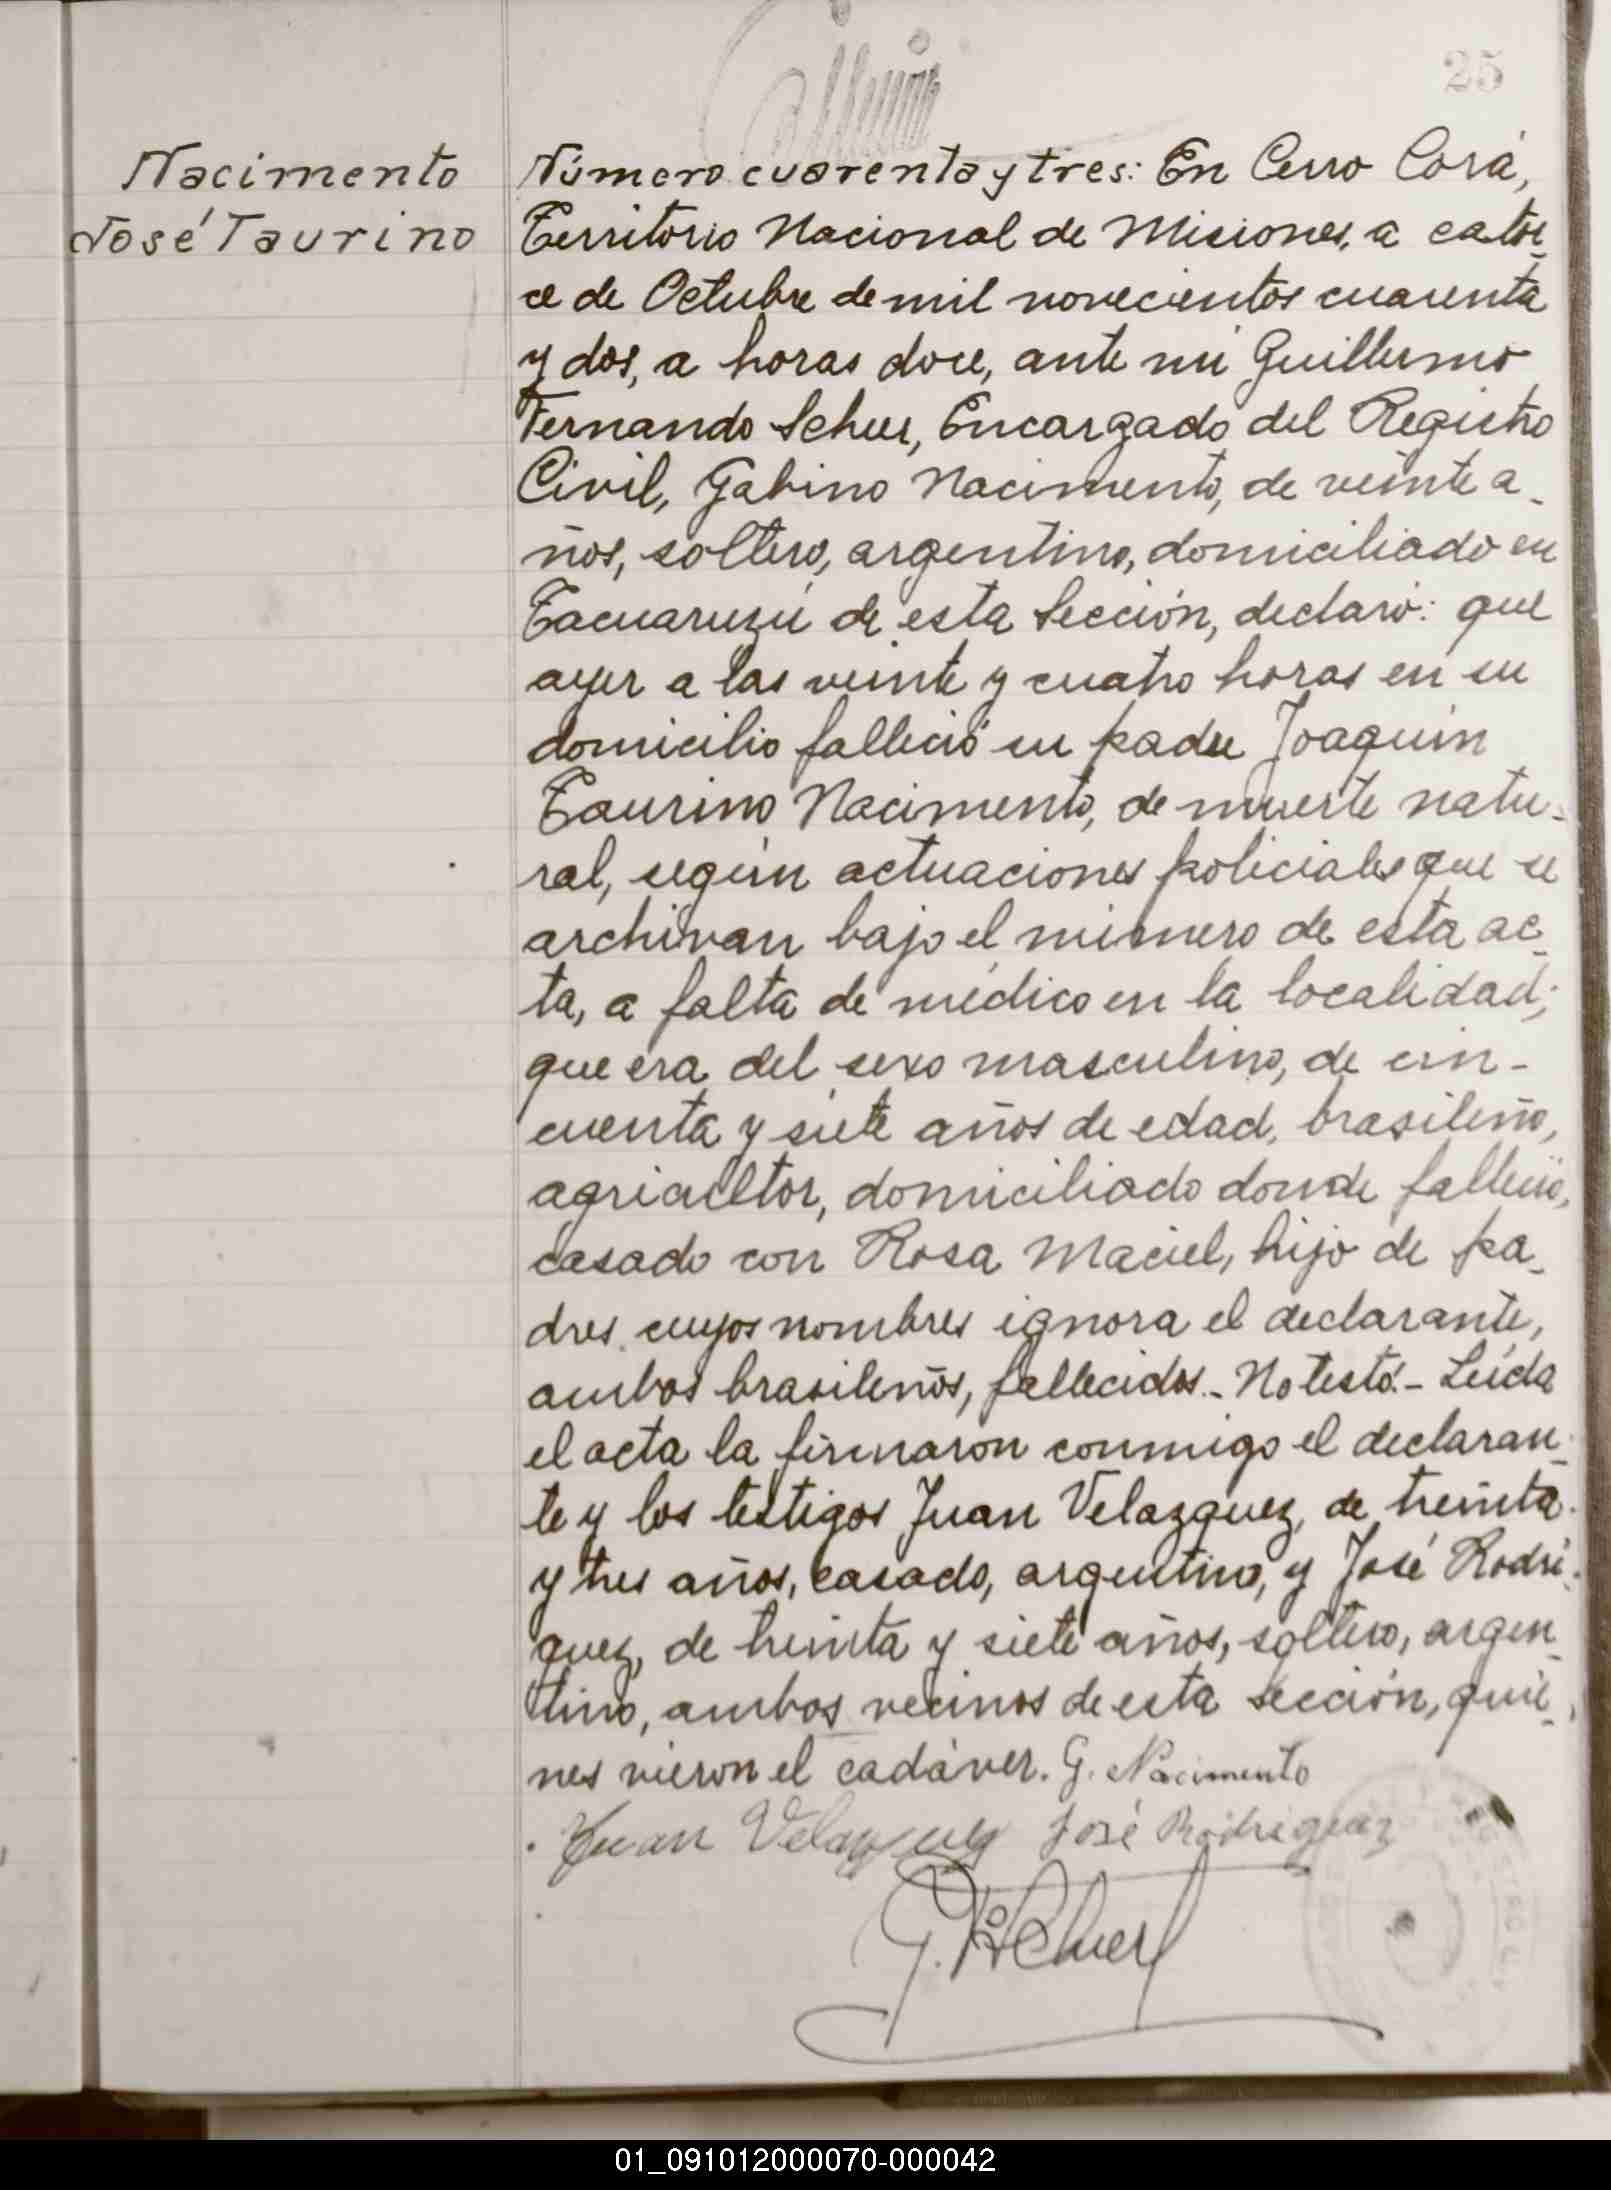 25
Nacimento
José Taurino
Número cuarenta y tres: En Cerro Corá,
Territorio Nacional de Misiones, a cator_
ce de Octubre de mil novecientos cuarenta
y dos, a horas doce, ante mi Guillermo
Fernando Scheer, Encargado del Registro
Civil, Gabino Nacimento, de veinte a_
ños, soltero, argentino, domiciliado en
Tacuaruzú de esta Sección, declaró: que
ayer a las veinte y cuatro horas en su
domicilio falleció su padre Joaquín
Taurino Nacimento, de muerte natu_
ral, según actuaciones policiales que se
archivan bajo el número de esta ac_
ta, a falta de médico en la localidad;
que era del sexo masculino, de cin-
cuenta y siete años de edad, brasileño,
agricultor, domiciliado donde falleció,
casado con Rosa Maciel, hijo de pa_
dres cuyos nombres ignora el declarante,
ambos brasileños, fallecidos._ No testó._ Leída
el acta la firmaron conmigo el declaran_
te y los testigos Juan Velazquez, de treinta
y tres años, casado, argentino, y José Rodri_
guez, de treinta y siete años, soltero, argen_
tino, ambos vecinos de esta sección, quie_
nes vieron el cadáver. G. Nacimento
Juan Velazquez José Rodriguez
01_091012000070-000042